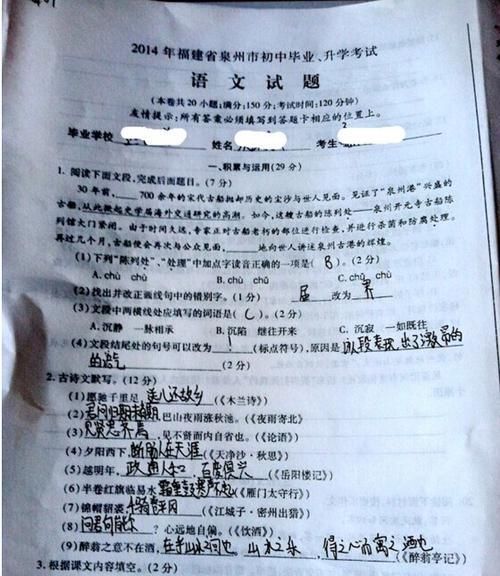 2014年福建省泉州市初中毕业、升学考试
语 文 试 题
(本卷共20小题;满分:150分;考试时间:120分钟)
友情提示:所有答案必须填写到答题卡相应的位置上。
毕业学校 姓名 考生
一、积累与运用(29分)
1. 阅读下面文段,完成后面题目。(7分)
30年前,____700余年的宋代古船抛却历史的尘沙与世人见面。见证了“泉州港”兴盛的
古船,从此掀起史学届海外交通研究的高潮。如今,这艘古船的陈列处——泉州开元寺古船陈
列馆大门紧闭。由于时间久远,专家正对古船老朽的部位进行检查,并进行杀菌和防腐处理。
再过几个月,古船便会再次与公众见面,____地向世人讲述泉州古港的辉煌。
(1)下列“陈列处”、“处理”中加点字读音正确的一项是( B )。(2分)
A. chù chù B. chù chǔ C. chǔ chù
(2)找出并改正画线句中的错别字。(1分) 届 改为 界
(3)文段中两横线处应填写的词语是( C )。(2分)
A. 沉静 一脉相承 B. 沉陷 继往开来 C. 沉寂 一如既往
(4)文段结尾处的句号可以改为 ! (标点符号),原因是 表现出了激昂的
的语气 (2分)
2. 古诗文默写。(12分)
(1)愿驰千里足,送儿还故乡(《木兰诗》)
(2)君问归期未有期,巴山夜雨涨秋池。(《夜雨寄北》
(3)见贤思齐焉,见不贤而内自省也。(《论语》)
(4)夕阳西下,断肠人在天涯(《天净沙·秋思》)
(5)越明年,政通人和,百废俱兴(《岳阳楼记》)
(6)半卷红旗临易水,霜重鼓寒声不起(《雁门太守行》)
(7)锦帽貂裘,千骑卷平冈(《江城子·密州出猎》)
(8)问君何能尔?心远地自偏。(《饮酒》)
(9)醉翁之意不在酒,在乎山水之间也。山水之乐,得之心而寓之酒也(《醉翁亭记》)
3. 根据课文内容填空。(2分)